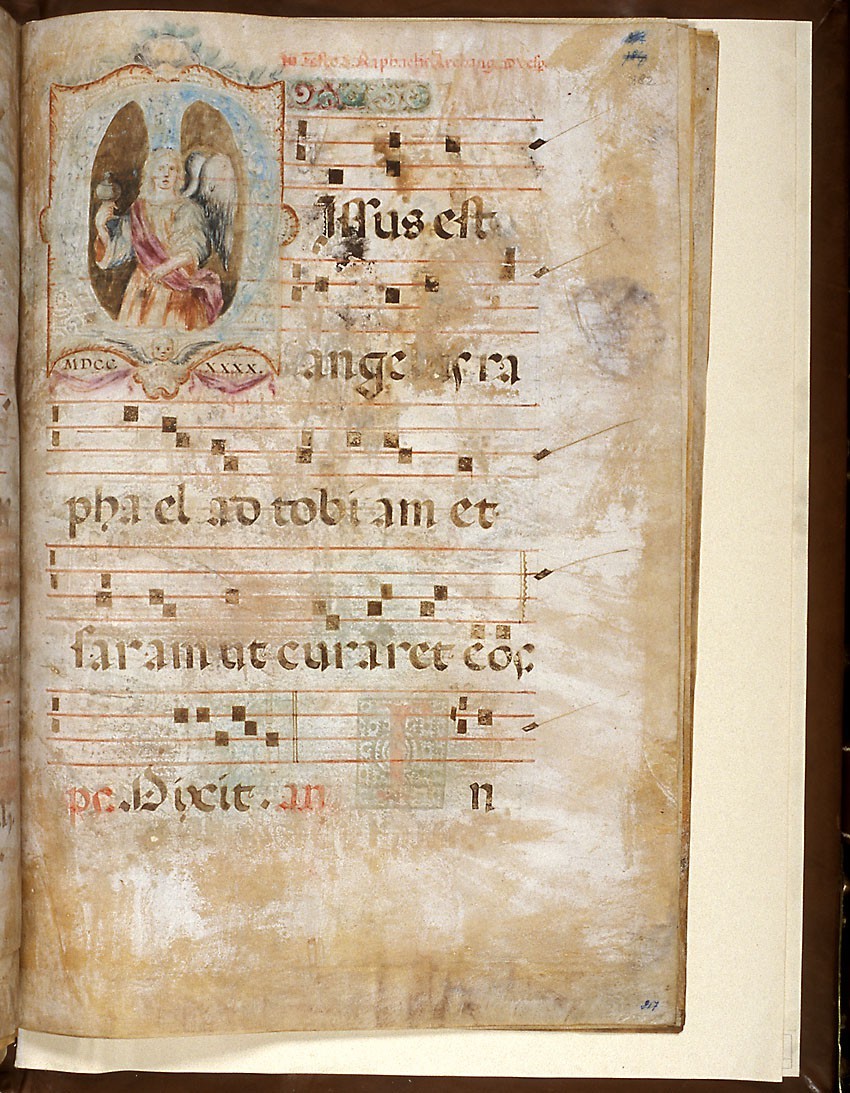 In Festo S. Raphaelis Archang. ad vesp.
Issus est
angelus ra
MDCC XXXX.
pha el ad tobi am et
saram ut curaret eos
ps. Dixit. an I n
317